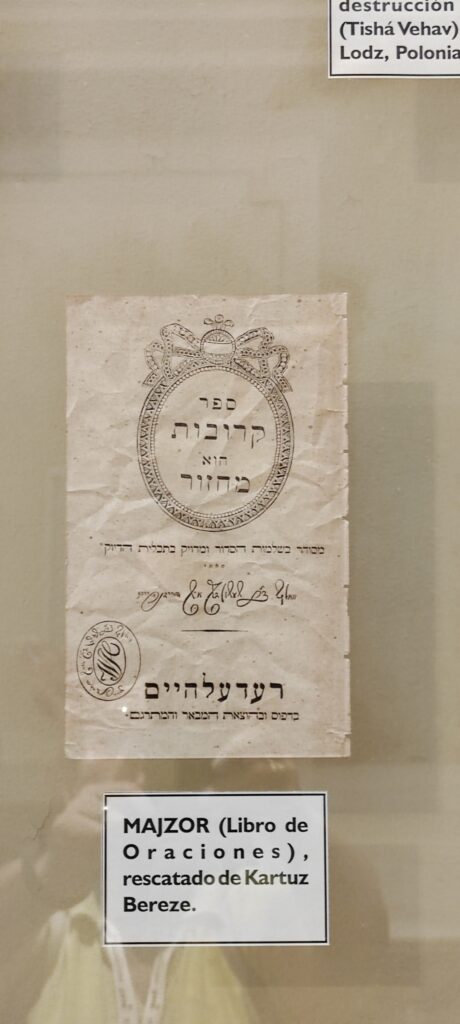 destrucción
(Tishá Vehav)
Lodz, Polonia
ספר
קרובות
הוא
מחזור
מסודר בשלמות הסדור ומדויק בתכלית הדיוק
רעדעלהיים
בדפוס ובהוצאת המבאר והמתרגם
MAJZOR (Libro de
Oraciones),
rescatado de Kartuz
Bereze.